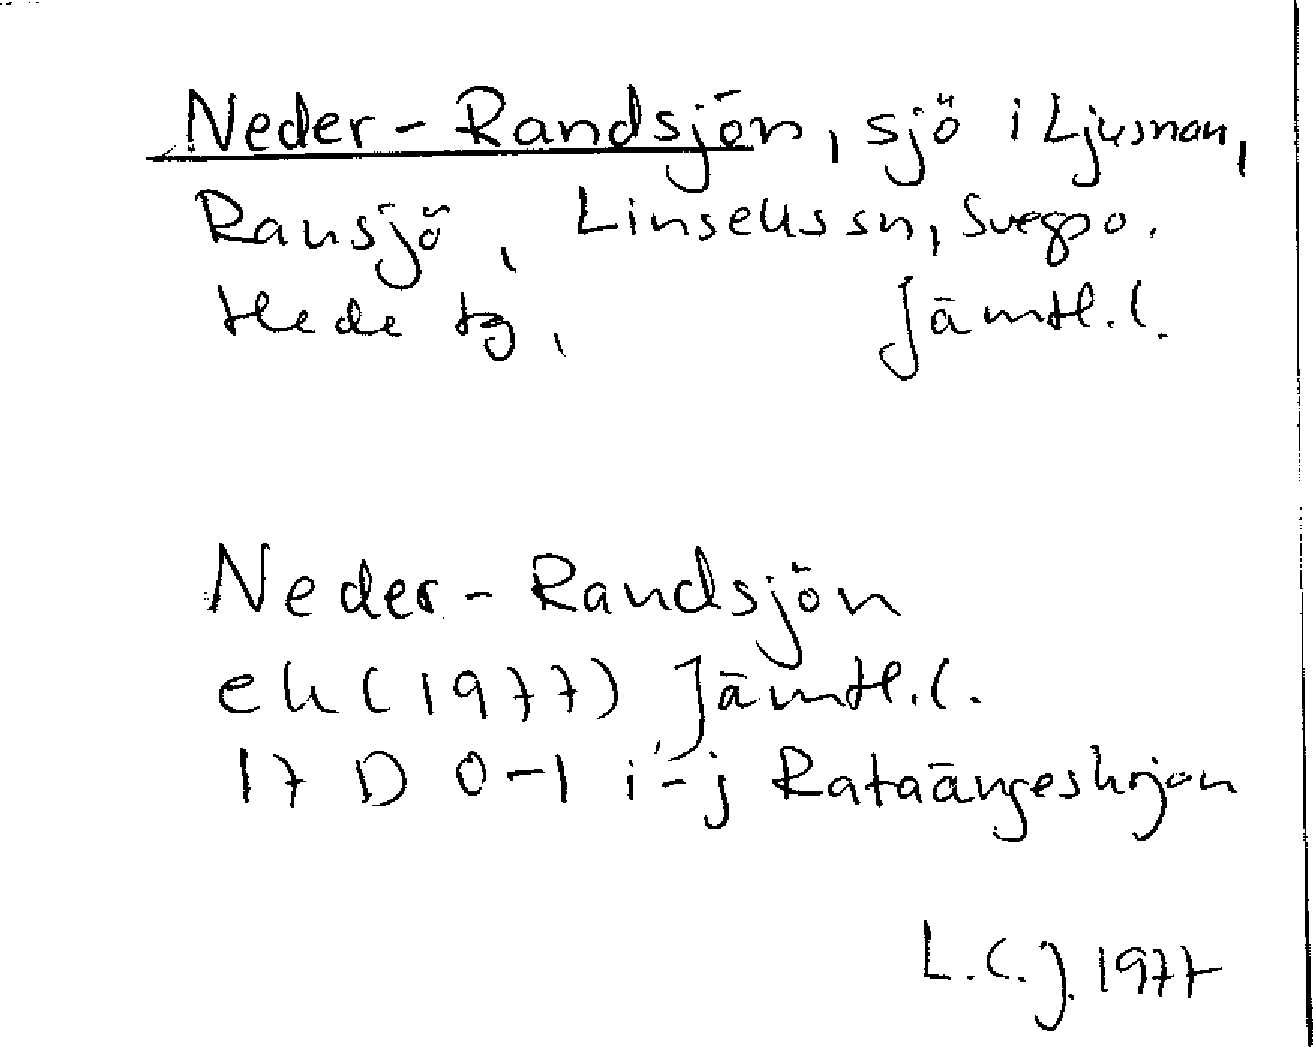 Neder-Randsjön, sjö i Ljusnan,
Ransjö, Linsells sn, Svegs po.
Hede tg, Jämtl.l.
Neder-Randsjön
ek (1977) Jämtl.l.
17 D 0-1 i-j Rataängeskojan
L.C.J. 1977